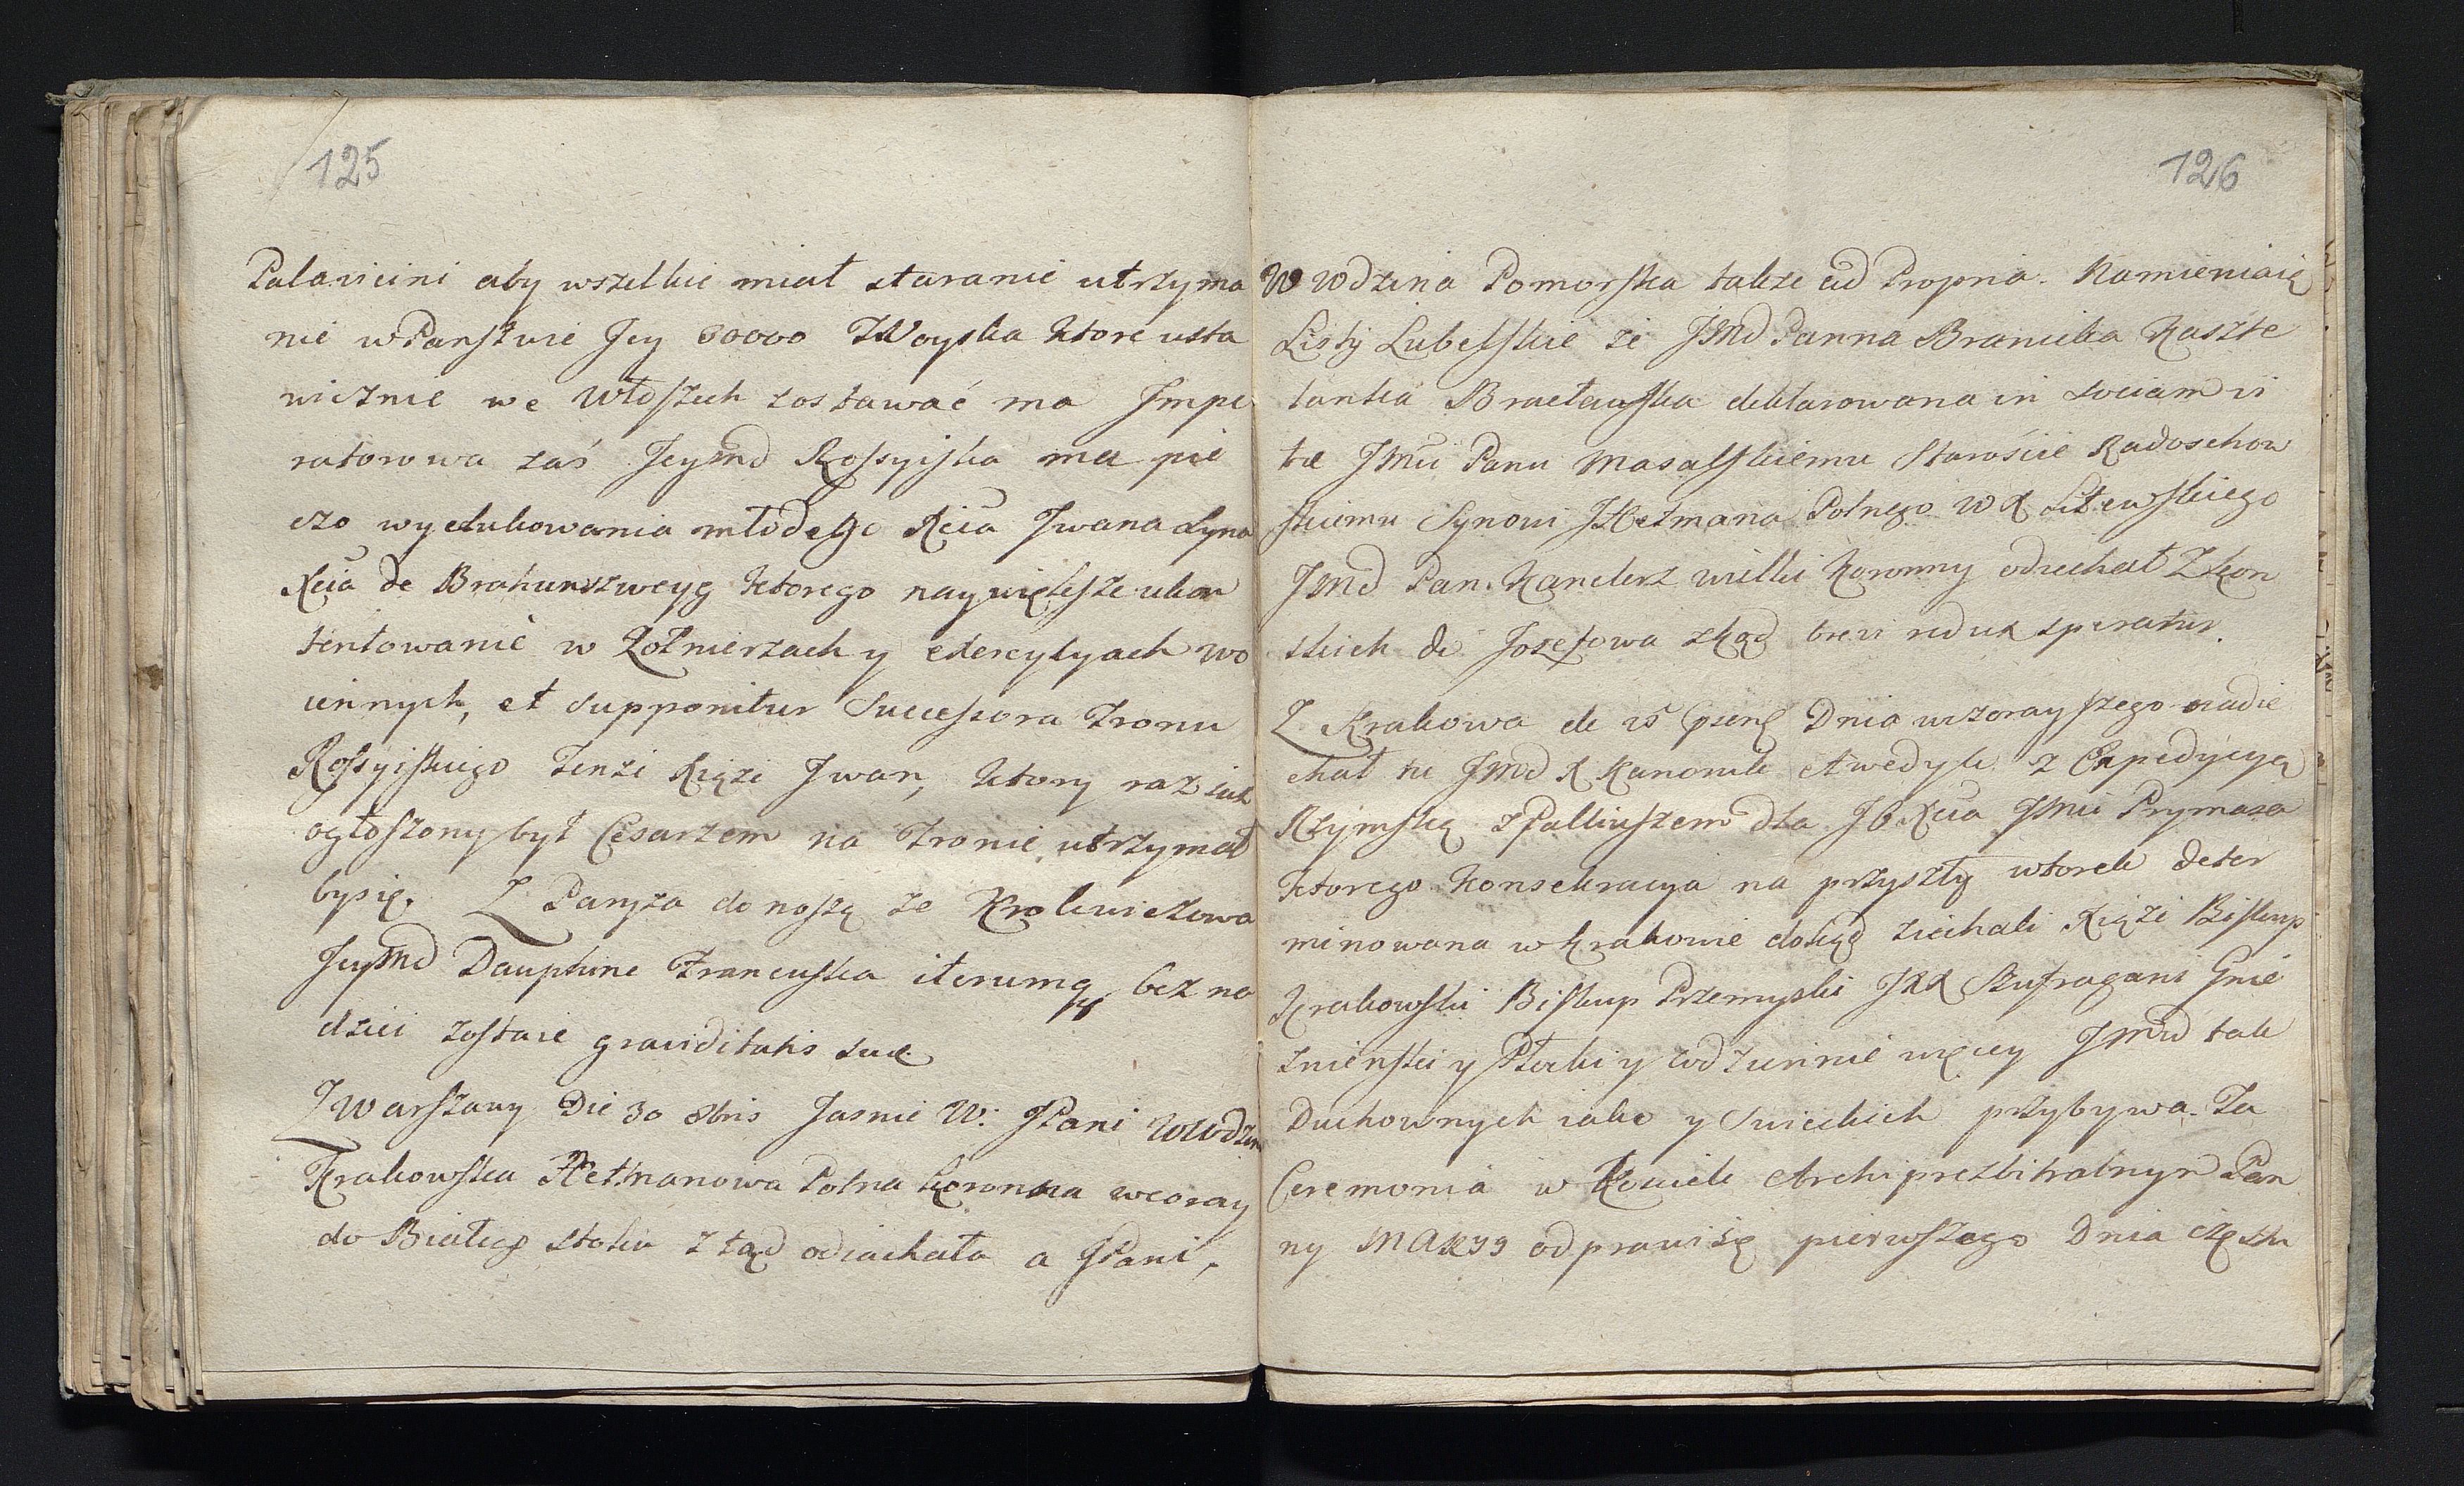 125
Palavicini aby wszelkie miał staranie utrzyma
nie w Panstwie Jey 30000 Woyska ktore usta
wicznie we Włoszech zostawać ma Jmpe
ratorowa zaś Jeymć Rossyiska ma pie
czo wyedukowania młodego Xcia Jwana Syna
Xcia de Brahunszweyg ktorego naywiększe ukon
tentowanie w Zołnierzach y exercycyach wo
iennych, et supponitur Successora Tronu
Rossyiskiego Tenze Xiąze Jwan, ktory raz iuż
ogłoszony był Cesarzem na Tronie utrzymał
bysię. Z Paryza donoszą ze Krolewiczowa
Jeymć Dauphine Francuska iterumq bez na
dziei zostaie graviditatis suæ
Z Warszawy Die 30 8bris Jasnie W: JPani WWdzina
Krakowska Hetmanowa Polna Koronna wcoray
do Białego Stoku ztąd odiachała a JPani,
126
W Wdzina Pomorska takze ad Propria. Namieniaią
Listy Lubelskie ze JMć Panna Branicka Kaszte
lanka Bracławska deklarowana in sociam vi
tæ JMci Panu Masalskiemu Staroscie Radoschow
skiemu Synowi JHetmana Polnego W X Litewskiego
JMć Pan Kanclerz wielki Koronny odiechał z Kon
skich do Jozefowa zkąd brevi redux speratur.
Z Krakowa de 25 Dnia wczorayszego nadie
chał tu JMć X Kanonik z Expedycyą
Rzymską z Palliuszem dla JO Xcia JMci Prymasa
ktorego Konsekracya na przyszły wtorek deter
minowana w Krakowie dokąd ziechali Xiąze Biskup
Krakowski Biskup Przemyski JXX Szufragani Gnie
znienski y Płocki y codziennie więcey JMciow tak
Duchownych iako y Swieckich przybywa. Ta
Ceremonia w Kosciele Archiprezbitralnym Pan
ny MARYY odprawi się pierwszego Dnia